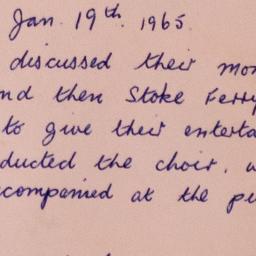 Jan. 19th. 1965.
discussed their mon
nd then Stoke Ferry
to give their enterta
ducted the choir. w
ccompanied at the pi